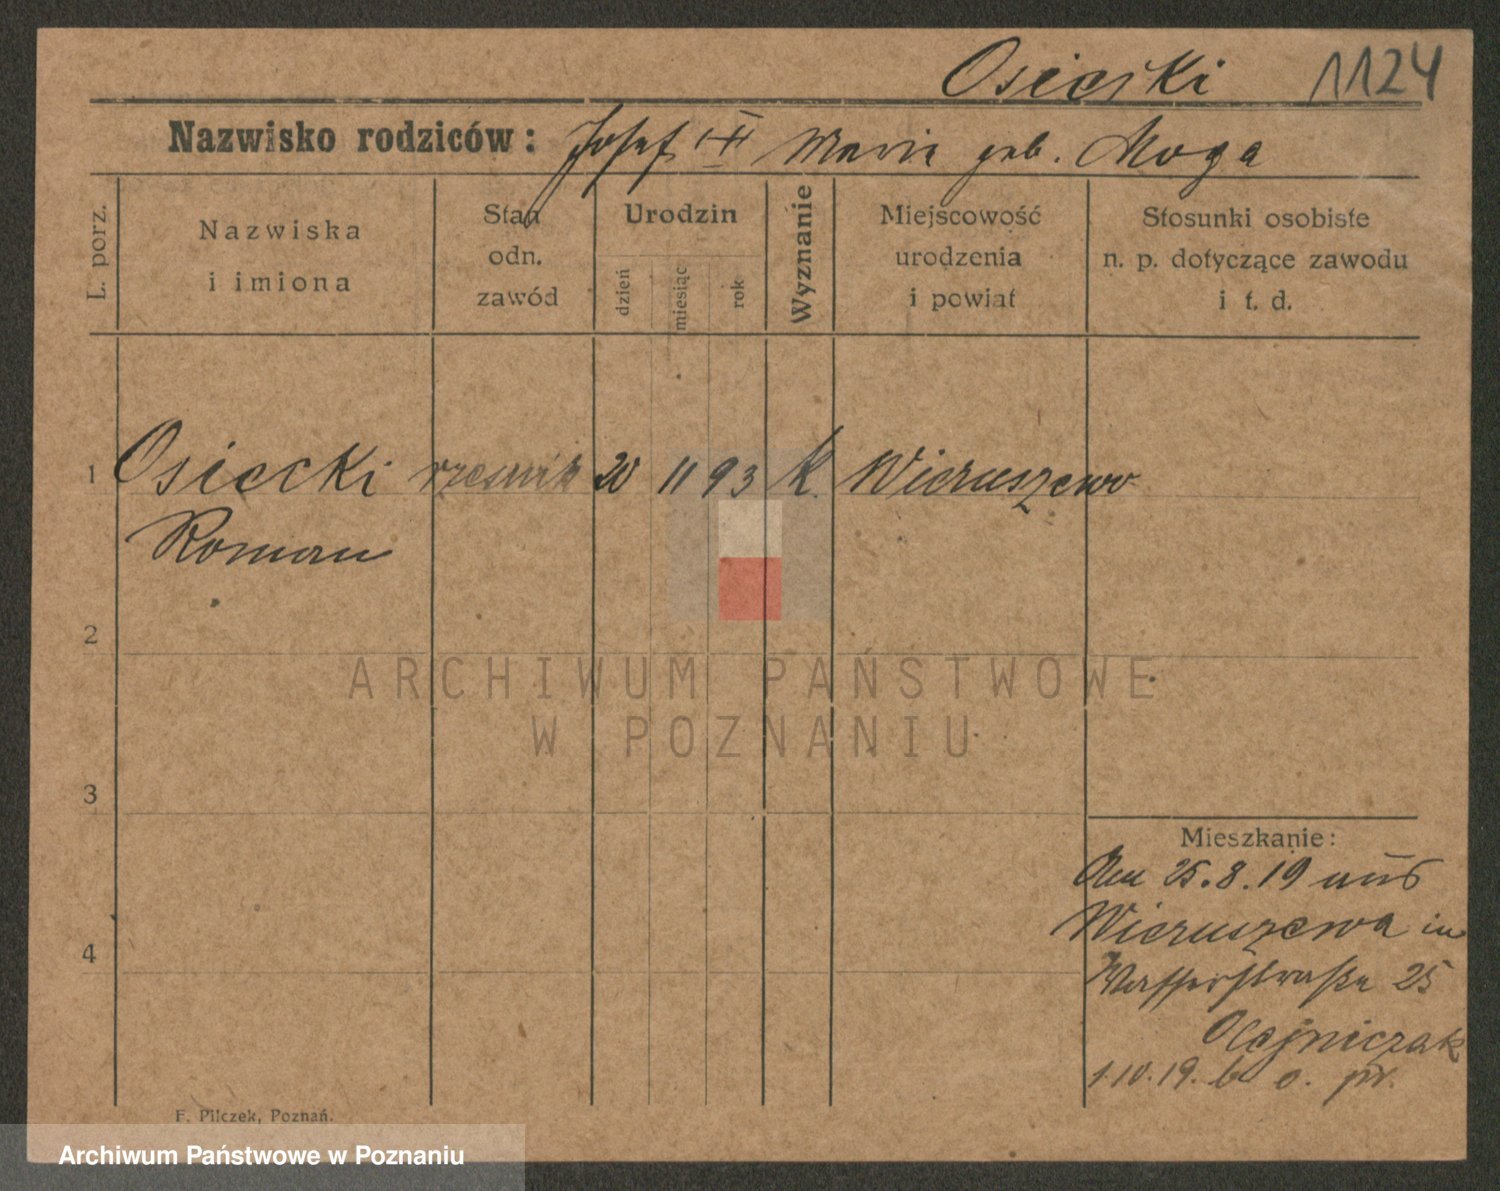 Osiecki 1124
Nazwisko rodziców: Josef Marie geb. Moga
L. porz.
Nazwiska
i imiona
Stan
odn.
zawód
Urodzin
dzień
miesiąc
rok
Wyznanie
Miejscowość
urodzenia
i powiat
Stosunki osobiste
n. p. dotyczące zawodu
i t. d.
1 Osiecki rzeźnik 20 11 93 k. Wieruszewo
Roman
2
3
4
Mieszkanie:
Am 25.8.19 aus
Wieruszewa in
Wasserstraße 25
Olejniczak
1.10.19. b o. pr.
F. Pilczek, Poznań.
ARCHIWUM PAŃSTWOWE
W POZNANIU
Archiwum Państwowe w Poznaniu